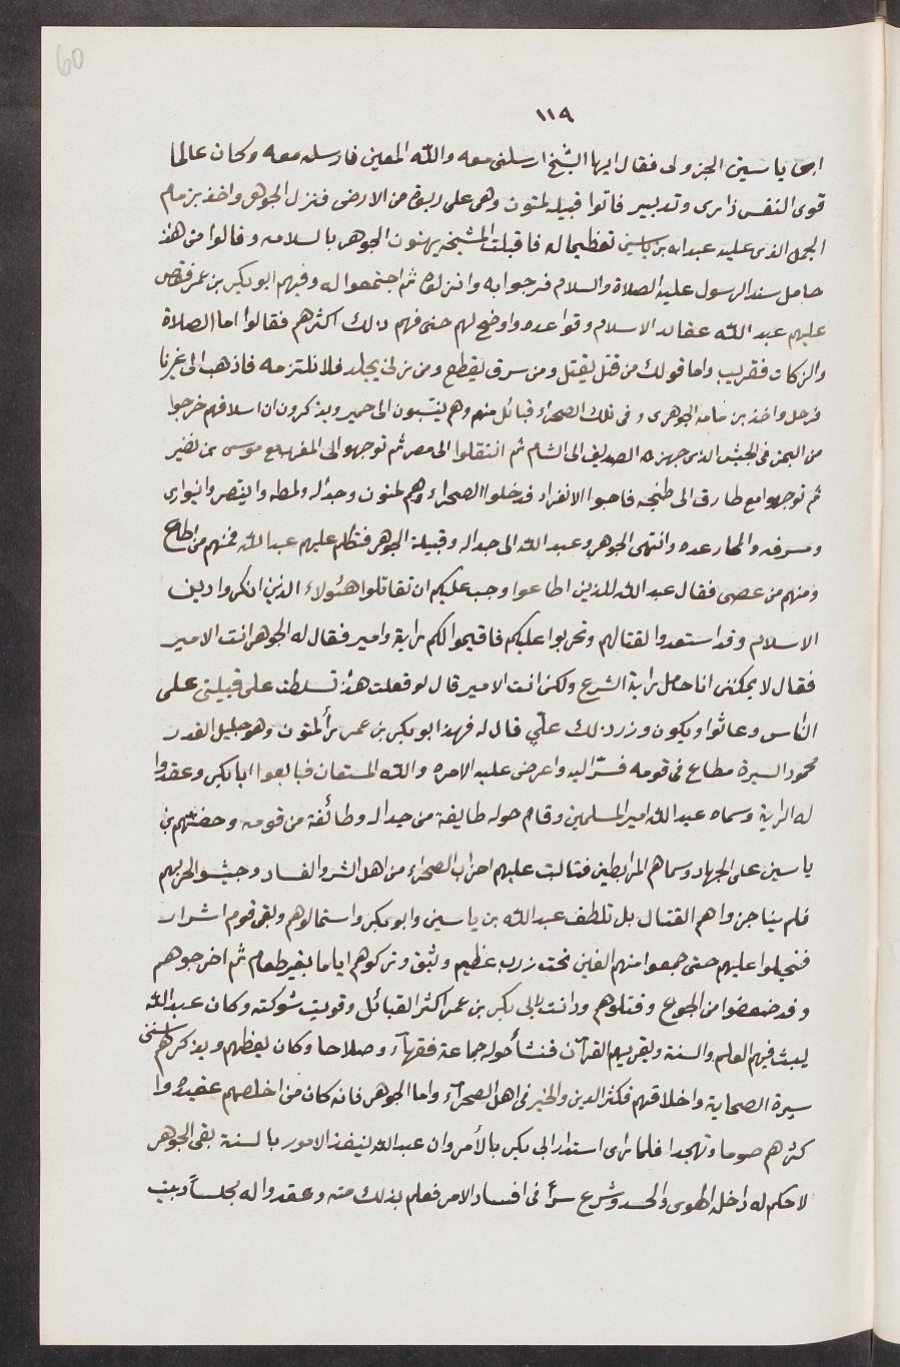 60
١١٩
ابن ياسين الجزولى فقال ايها الشيخ ارسلنى معه والله المعين فارسله معه وكان عالما
قوى النفس ذا راى وتدبير فاتوا قبيلة لمتون وهى على ربوة من الارض فنزل الجوهر واخذ بزمام
الجمل الذى عليه عبد الله بن ياسين تعظيما له فاقبلت المشيخه يهنون الجوهر بالسلامه وقالوا من هذا
حامل سند الرسول عليه الصلاة والسلام فرحوا به وانزلوه ثم اجتمعوا له وفيهم ابو بكر بن عمر فقص
عليهم عبد الله عقائد الاسلام وقواعده واوضح لهم حتى فهم ذلك اكثرهم فقالوا اما الصلاة
والزكات فقريب واما قولك من قتل يقتل ومن سرق يقطع ومن زنى يجلد فلا نلتزمه فاذهب الى غيرنا
فرحل واخذ بزمامه الجوهرى وفى تلك الصحراء قبائل منهم وهم ينتسبون الى حمير ويذكرون ان اسلافهم خرجوا
من اليمن فى الجيش الذى جهزه الصديق الى الشام ثم انتقلوا الى مصر ثم توجهوا الى المغرب مع موسى بن نصير
ثم توجهوا مع طارق الى طنجه فاحبوا الانفراد فدخلوا الصحراء وهم لمتون وجداله ولمطه والينصر وانيوارى
ومسوفه والحار عده وانتهى الجوهر وعبد الله الى جداله وقبيلة الجوهر فتكلم عليهم عبد الله فمنهم من اطاع
ومنهم من عصى فقال عبد الله للذين اطاعوا وجب عليكم ان تقاتلوا هئولاء الذين انكروا دين
الاسلام وقد استعدوا لقتالهم وتحزبوا عليكم فاقيموا لكم راية وامير فقال له الجوهر انت الامير
فقال لا يمكننى انا حامل راية الشرع ولكن انت الامير قال لو فعلت هذا تسلطت على قبيلتى على
الناس وعاثوا ويكون وزر ذلك علّي قال له فهذا ابو بكر بن عمر رأ لمتون وهو جليل القدر
محمود السيرة مطاع فى قومه فسر اليه واعرض عليه الامره والله المستعان فبايعوا ابا بكر وعقدوا
له الراية وسماه عبد الله امير المسلمين وقام حوله طايفة من جداله وطائفة من قومه وحضّهم بن
ياسين على الجهاد وسماهم المرابطين فتالبت عليهم احزاب الصحراء من اهل الشر والفساد وجيشوا لحربهم
فلم يناجزواهم القتال بل تلطف عبد الله بن ياسين وابو بكر واستمالوهم وبقى قوم اشرار
فتحيلوا عليهم حتى جمعوا منهم الفين تحت زرب عظيم وثيق وتركوهم اياما بغير طعام ثم اخرجوهم
وقد ضعضوا من الجوع وقتلوهم ودانت لابى بكر بن عمر اكثر القبائل وقويت شوكته وكان عبد الله
يبث فيهم العلم والسنة ويقريهم القرآن فنشأ حوله جماعة فقهآء وصلاحا وكان يعظهم ويذكرهم
سيرة الصحابة واخلاقهم فكثر الدين والخير فى اهل الصحرآء واما الجوهر فانه كان من اخلصهم عقيدة وا
كثرهم صوما وتهجدا فلما راى استدار ابى بكر بالأمر وان عبد الله ينفذ الامور بالسنة بقى الجوهر
لا حكم له داخله الهوى والحسد وشرع سرأ فى افساد الامر فعلم بذلك منه وعقدوا له مجلسأ